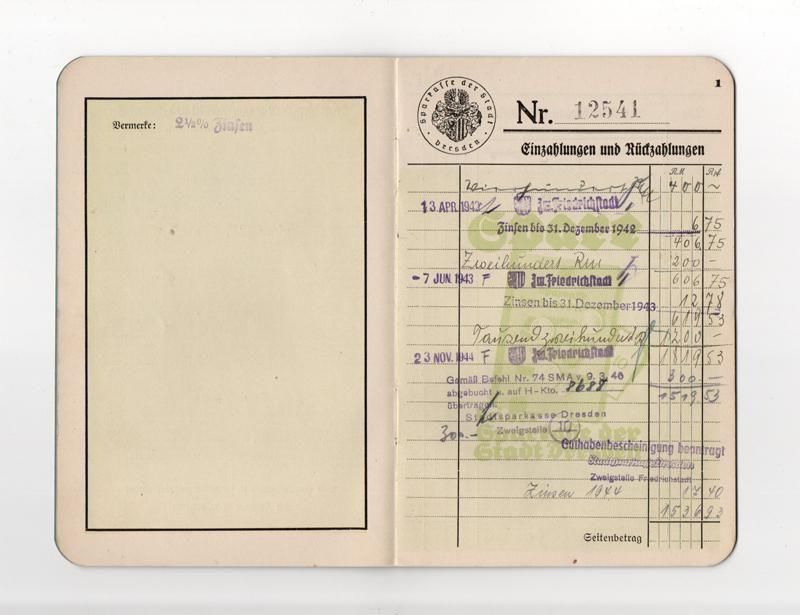 Vermerke: 2½% Zinsen
Sparkasse der Stadt Dresden
1
Nr. 12541
Einzahlungen und Rückzahlungen
RM Rpf
Vierhundert 400 –
13. APR. 1943 Zw. Friedrichstadt
Zinsen bis 31. Dezember 1942 6 75
406 75
Zweihundert RM 200 –
-7. JUN. 1943 F Zw. Friedrichstadt 606 75
Zinsen bis 31. Dezember 1943 12 78
619 53
Tausendzweihundert 1200 –
23. NOV. 1944 F Zw. Friedrichstadt 1819 53
Gemäß Befehl Nr. 74 SMA v. 9.3.46 300 –
abgebucht u. auf H-Kto. 8688 1519 53
übertragen.
Stadtsparkasse Dresden
300.- Zweigstelle 10
Spare
Stadt Dresden
Guthabenbescheinigung beantragt
Stadtsparkasse Dresden
Zweigstelle Friedrichstadt
Zinsen 1944 17 40
1536 93
Seitenbetrag